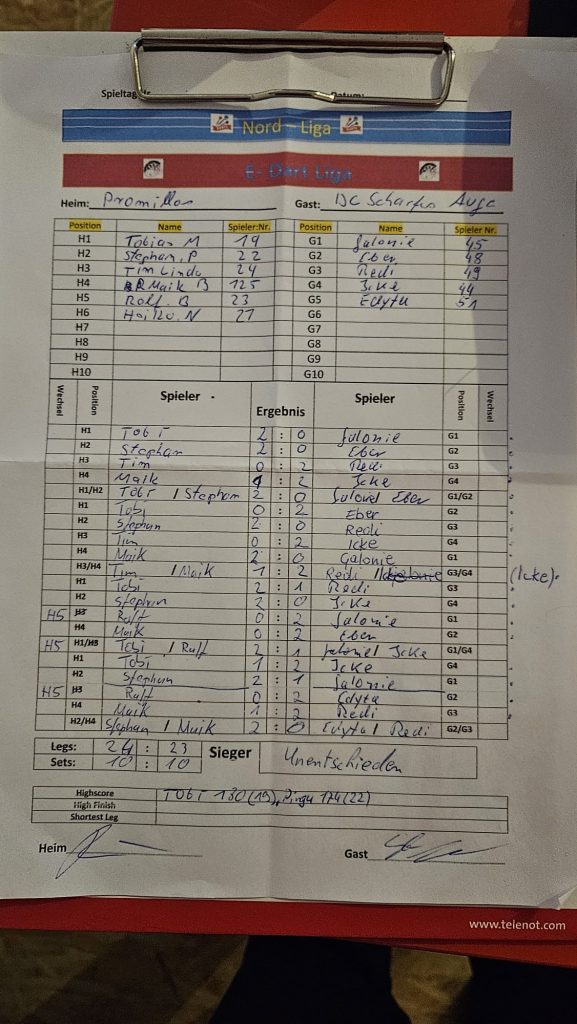 Spieltag
Datum:
Nord – Liga
E- Dart Liga
Heim: Promillos Gast: DC Scharfes Auge
Position Name Spieler:Nr. Position Name Spieler Nr.
H1 Tobias M 19 G1 Galonie 45
H2 Stephan.P 22 G2 Eber 48
H3 Tim Linde 24 G3 Redi 49
H4 Maik B 125 G4 Icke 44
H5 Ralf.B 23 G5 Edyta 51
H6 Heiko.N 21 G6
H7 G7
H8 G8
H9 G9
H10 G10
Wechsel Position Spieler Ergebnis Spieler Position Wechsel
H1 Tobi 2 : 0 Galonie G1
H2 Stephan 2 : 0 Eber G2
H3 Tim 0 : 2 Redi G3
H4 Maik : 2 Icke G4
H1/H2 Tobi / Stephan 2 : 0 Galonie/ Eber G1/G2
H1 Tobi 0 : 2 Eber G2
H2 Stephan 2 : 0 Redi G3
H3 Tim 0 : 2 Icke G4
H4 Maik 2 : 0 Galonie G1
H3/H4 Tim / Maik 1 : 2 Redi / G3/G4 (Icke)
H1 Tobi 2 : 1 Redi G3
H2 Stephan 2 : 0 Icke G4
H5 H3 Ralf 0 : 2 Galonie G1
H4 Maik 0 : 2 Eber G2
H5 H1/H3 Tobi / Ralf 2 : 1 Galonie/ Icke G1/G4
H1 Tobi 1 : 2 Icke G4
H2 Stephan 2 : 1 Galonie G1
H5 H3 Ralf 0 : 2 Edyta G2
H4 Maik 1 : 2 Redi G3
H2/H4 Stephan / Maik 2 : 0 Edyta/ Redi G2/G3
Legs: 24 : 23 Sieger Unentschieden
Sets: 10 : 10
Highscore TOBI 180(19), Pingu 174(22)
High Finish
Shortest Leg
Heim Gast
www.telenot.com